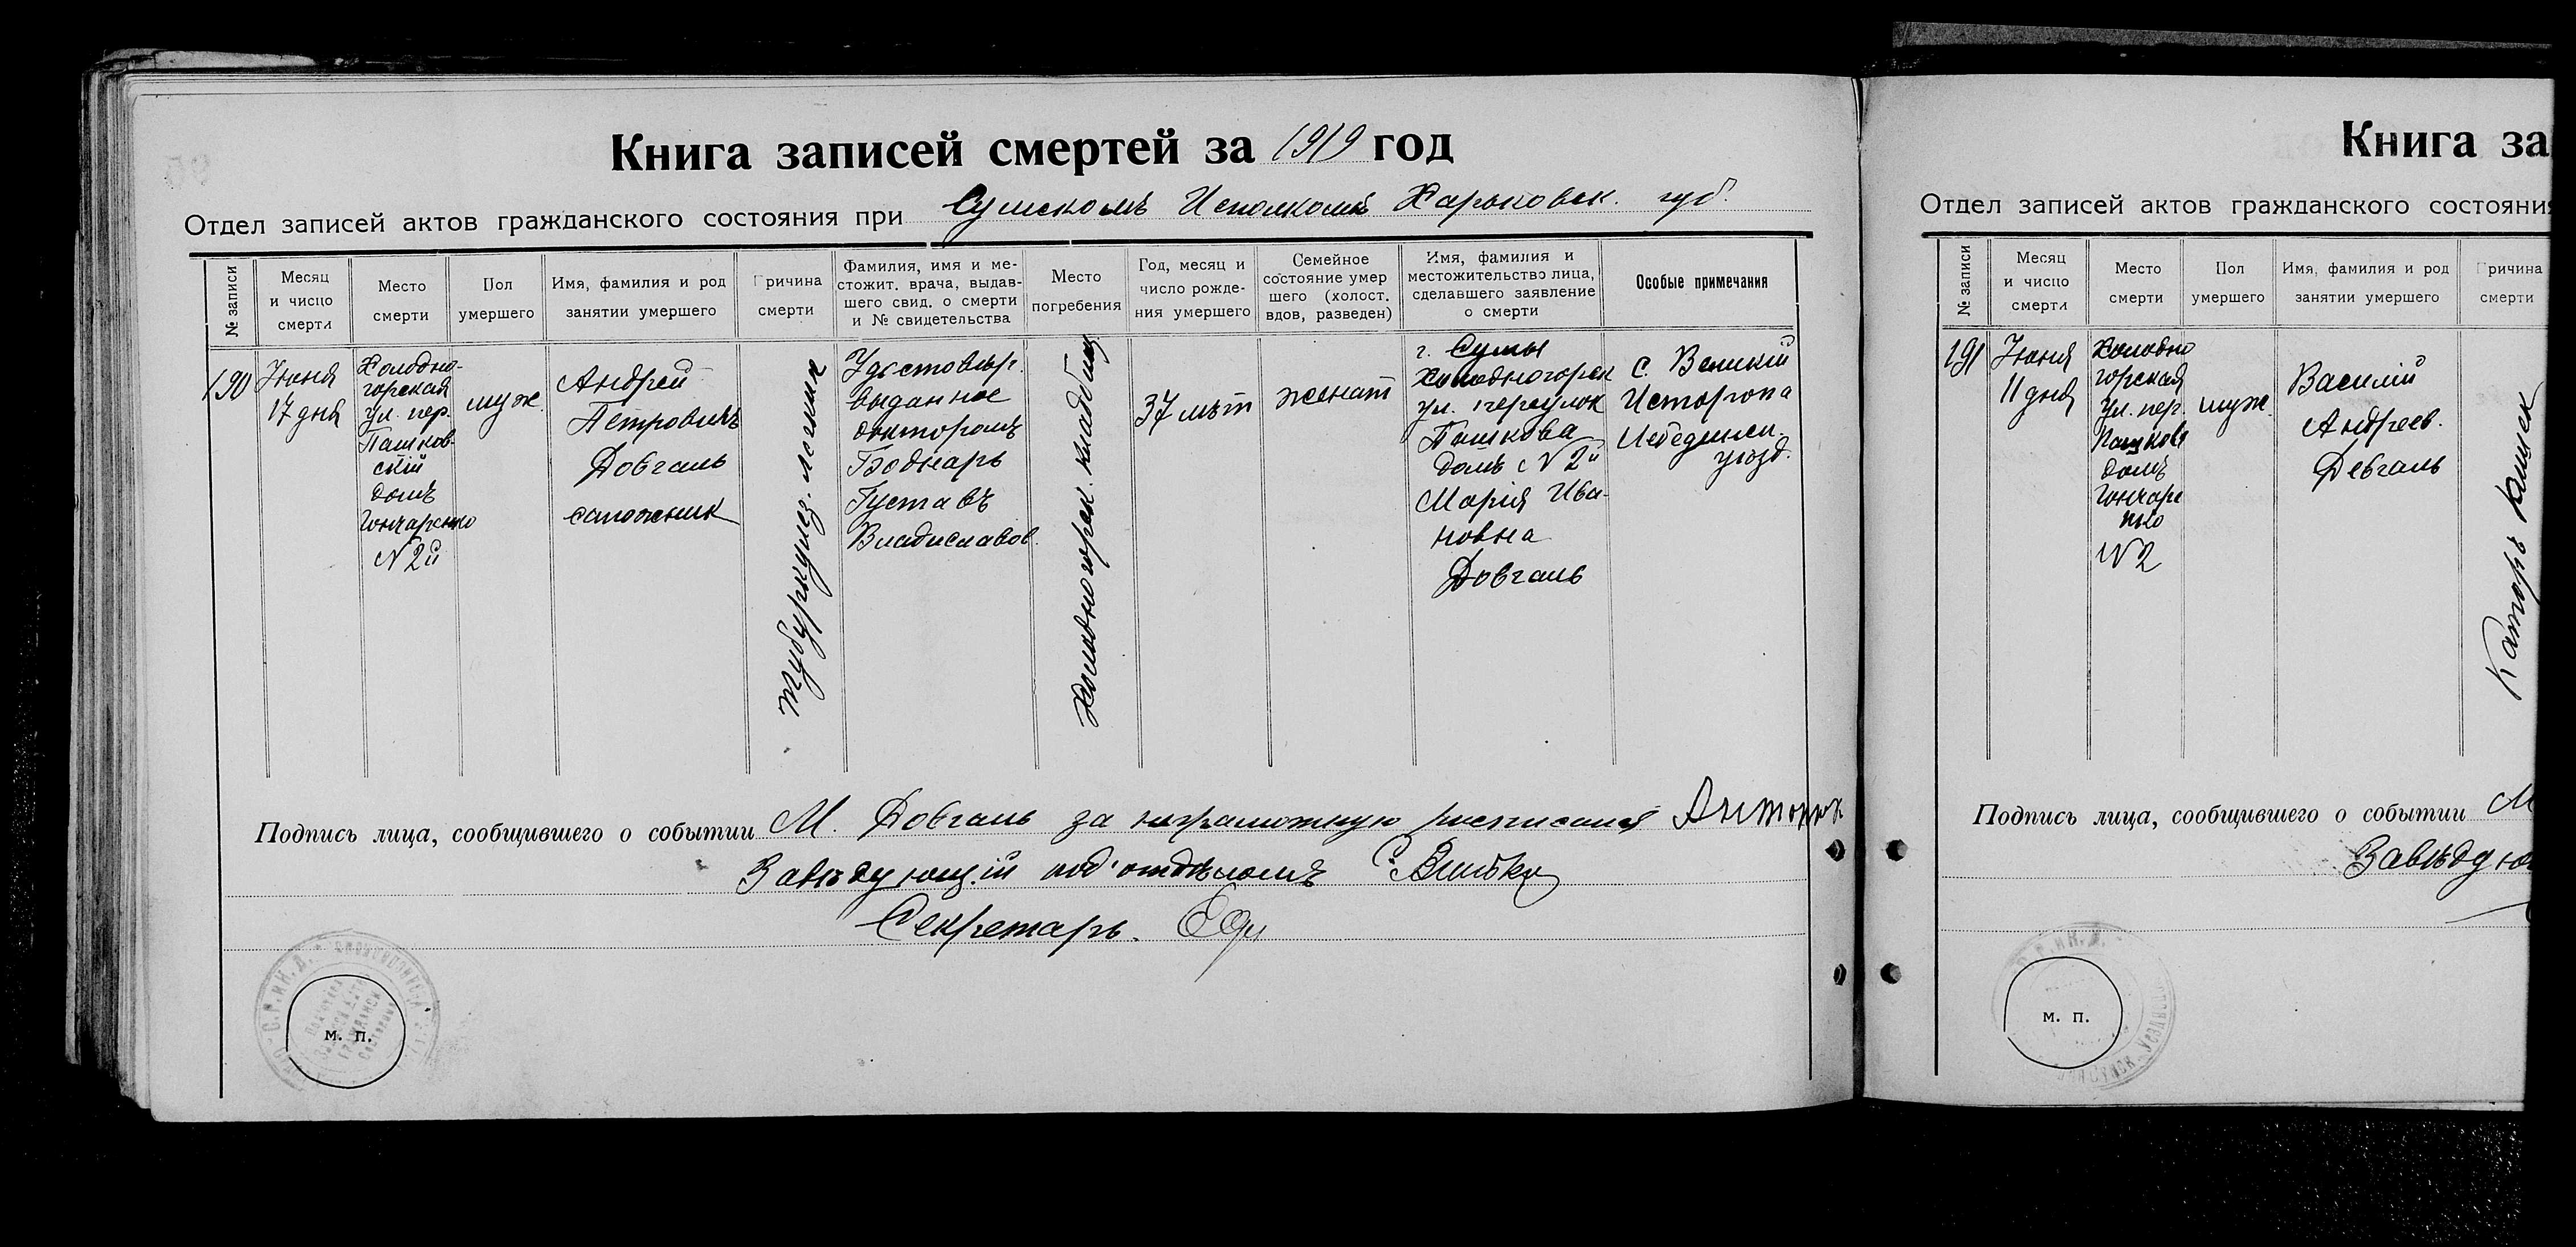 Книга записей смертей за 1919 год
Отдел записей актов гражданского состояния при Сумском Исполкоме Харьковск. губ.
№ записи
Месяц
и число
смерти
Место
смерти
Пол
умершего
Имя, фамилия и род
занятии умершего
Причина
смерти
Фамилия, имя и ме-
стожит. врача, выдав-
шего свид. о смерти
и № свидетельства
Место
погребения
Год, месяц и
число рожде-
ния умершего
Семейное
состояние умер
шего (холост.
вдов, разведен)
Имя, фамилия и
местожительство лица,
сделавшего заявление
о смерти
Особые примечания
190
Июня
17 дня
Холодно-
горская
ул. пер.
Пашков-
скій
домъ
Гончаренко
№ 2й
муж.
Андрей
Петровичъ
Довгаль
сапожник
туберкулез. легких
Удостовер.
выданное
докторомъ
Боднарь
Густавъ
Владиславов.
Холодногорск. кладбищ
37 лѣт
женат
г. Сумы
Холодногорск
ул. переулок
Пашкова
домъ № 2й
Марія Ива-
новна
Довгаль
с. Великій
Исторопа
Лебединск.
уѣзд.
Подпись лица, сообщившего о событии М. Довгаль за неграмотную росписался Антонюк
Завѣдующій под'отдѣломъ
Секретарь.
м. п.
Книга за
Отдел записей актов гражданского состояния
№ записи
Месяц
и число
смерти
Место
смерти
Пол
умершего
Имя, фамилия и род
занятии умершего
Причина
смерти
191
Июня
11 дня
Холодно
горская
ул. пер.
Пашкова
домъ
Гончаре
нко
№ 2
муж.
Василій
Андреев.
Довгаль
Катаръ кишек
Подпись лица, сообщившего о событии М
Завѣдую
м. п.